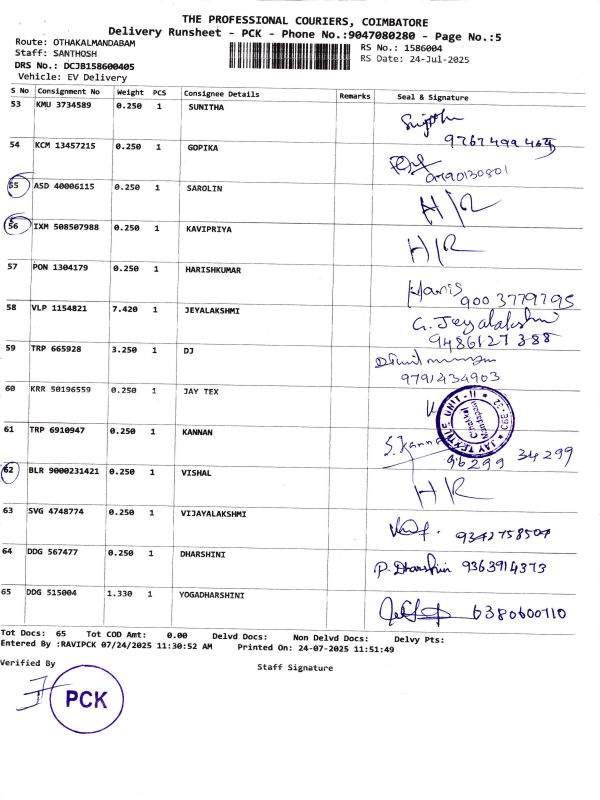 THE PROFESSIONAL COURIERS, COIMBATORE
Delivery Runsheet - PCK - Phone No.:9047080280 - Page No.:5
Route: OTHAKALMANDABAM
Staff: SANTHOSH
DRS No.: DCJB158600405
Vehicle: EV Delivery
RS No.: 1586004
RS Date: 24-Jul-2025
S No Consignment No Weight PCS Consignee Details Remarks Seal & Signature
53 KMU 3734589 0.250 1 SUNITHA
54 KCM 13457215 0.250 1 GOPIKA
55 ASD 40006115 0.250 1 SAROLIN H/R
56 IXM 508507988 0.250 1 KAVIPRIYA H/R
57 PON 1304179 0.250 1 HARISHKUMAR Haris 9003779795
58 VLP 1154821 7.420 1 JEYALAKSHMI G. Jeyalakshmi 9486127388
59 TRP 665928 3.250 1 DJ 9791434903
60 KRR 50196559 0.250 1 JAY TEX JAY TEXTILE UNIT-II
61 TRP 6910947 0.250 1 KANNAN S. Kannan 96299 34299
62 BLR 9000231421 0.250 1 VISHAL H/R
63 SVG 4748774 0.250 1 VIJAYALAKSHMI 9342758507
64 DDG 567477 0.250 1 DHARSHINI P. Dharshini 9363914373
65 DDG 515004 1.330 1 YOGADHARSHINI 6380600710
Tot Docs: 65 Tot COD Amt: 0.00 Delvd Docs: Non Delvd Docs: Delvy Pts:
Entered By :RAVIPCK 07/24/2025 11:30:52 AM Printed On: 24-07-2025 11:51:49
Verified By
Staff Signature
PCK